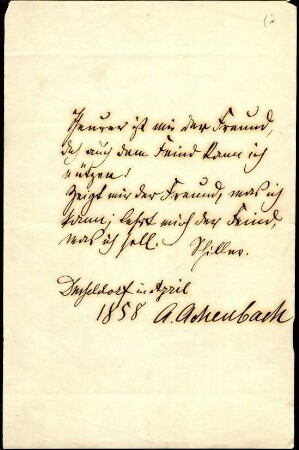 Theurer ist mir der Freund,
doch auch dem Feind kann ich
nützen!
Zeigt mir der Freund, was ich
kann; lehrt mich der Feind,
was ich soll. Schiller.
Düsseldorf im April
1858 A. Achenbach